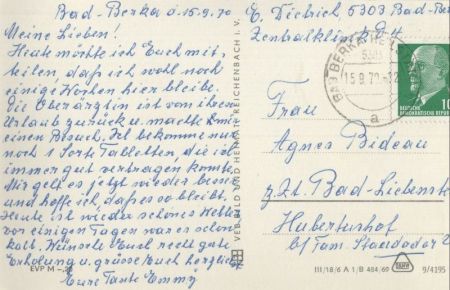 Bad-Berka d. 15.9.70
Meine Lieben!
Heute möchte ich Euch mit-
teilen, daß ich wohl noch
einige Wochen hier bleibe.
Die Oberärztin ist von ihrem
Urlaub zurück u. machte mir
einen Besuch. Ich bekomme nur
noch 1 Sorte Tabletten, die ich
immer gut vertragen konnte.
Mir geht es jetzt wieder besser
und hoffe ich, daß es so bleibt.
Heute ist wieder schönes Wetter
vor einigen Tagen war es schon
kalt. Wünsche Euch recht gute
Erholung u. grüsse Euch herzlich
Eure Tante Emmy
EVP M
VEB BILD UND HEIMAT REICHENBACH I. V.
E. Dietrich 5303 Bad-Ber
Zentralklinik
BAD BERKA
15.9.70
a
DEUTSCHE
DEMOKRATISCHE REPUBLIK
10
Frau
Agnes Bideau
z.Zt. Bad-Liebenste
Hubertushof
b/Fam.
III/18/6 A 1/B 484/69
9/4195